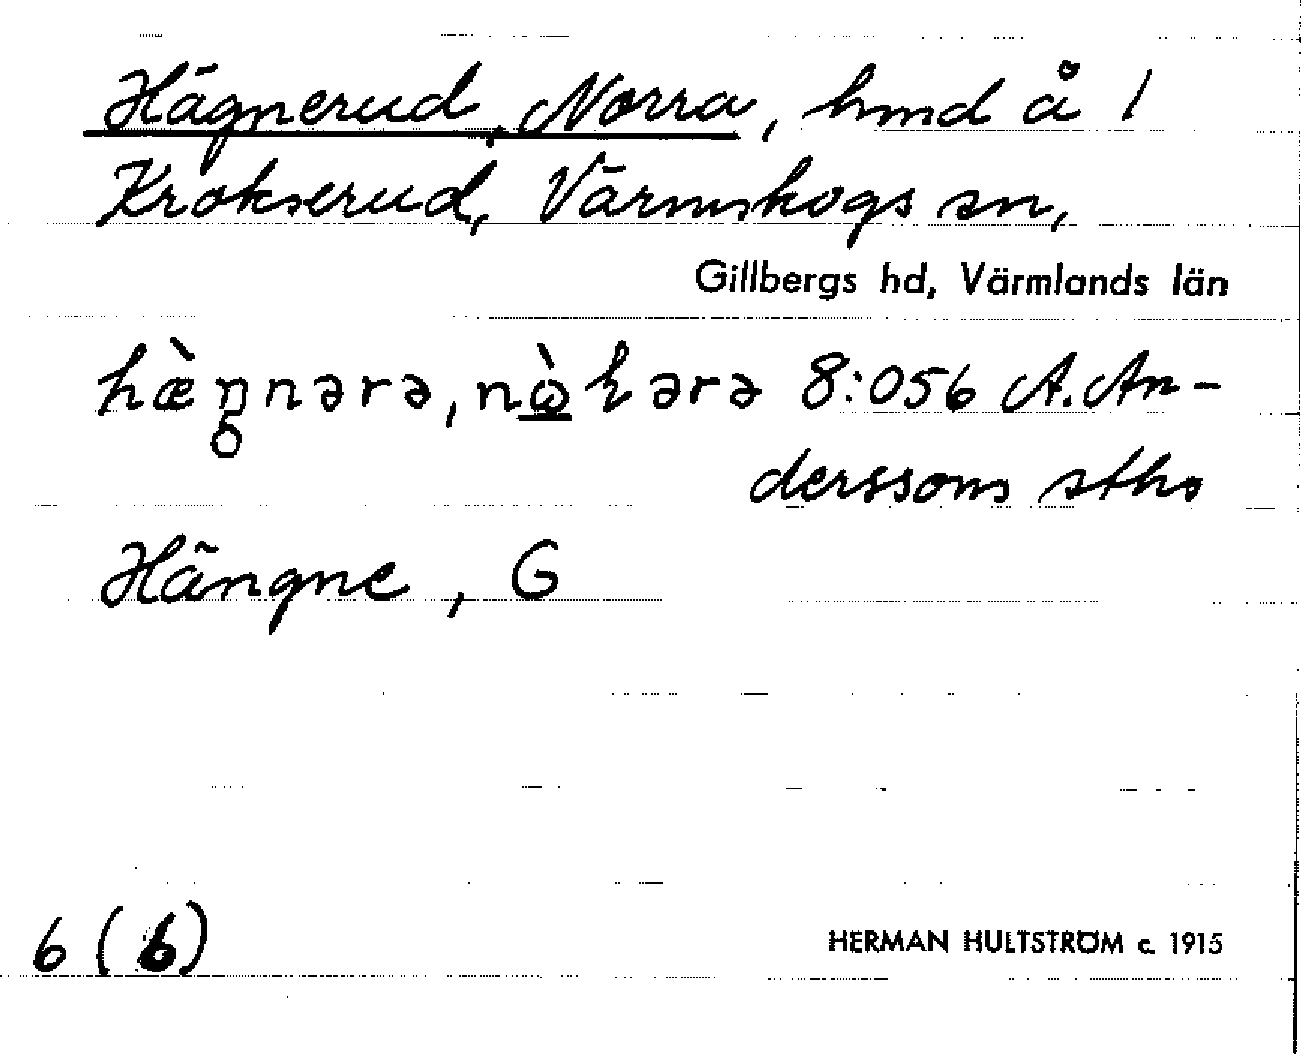 Hägnerud, Norra, hmd å 1
Krokserud, Värmskogs sn,
Gillbergs hd, Värmlands län
hæ̀n̥nərə, nὼꞕərə 8:056 A. An-
derssons stho
Hängne, G
6 (6)
HERMAN HULTSTRÖM c. 1915